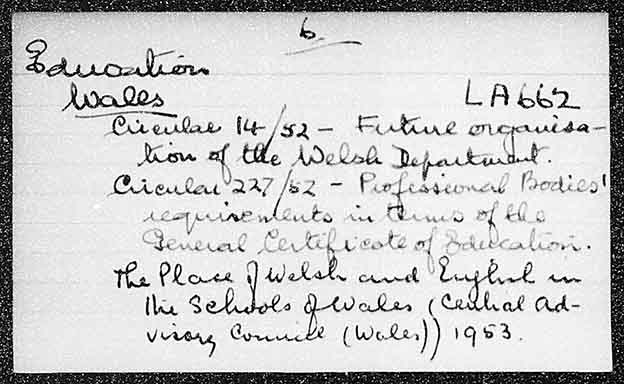 6.
Education
Wales
LA662
Circular 14/52 - Future organisa-
tion of the Welsh Department.
Circular 227/52 - Professional Bodies'
requirements in terms of the
General Certificate of Education.
The Place of Welsh and English in
the Schools of Wales (Central Ad-
visory Council (Wales)) 1953.